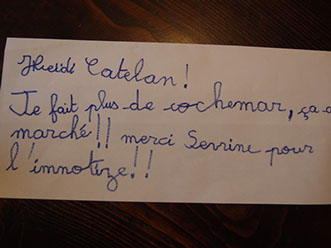 Heidi Catelan!
Je fait plus de cochemar, ça a
marché!! merci Serrine pour
l'imnotize!!